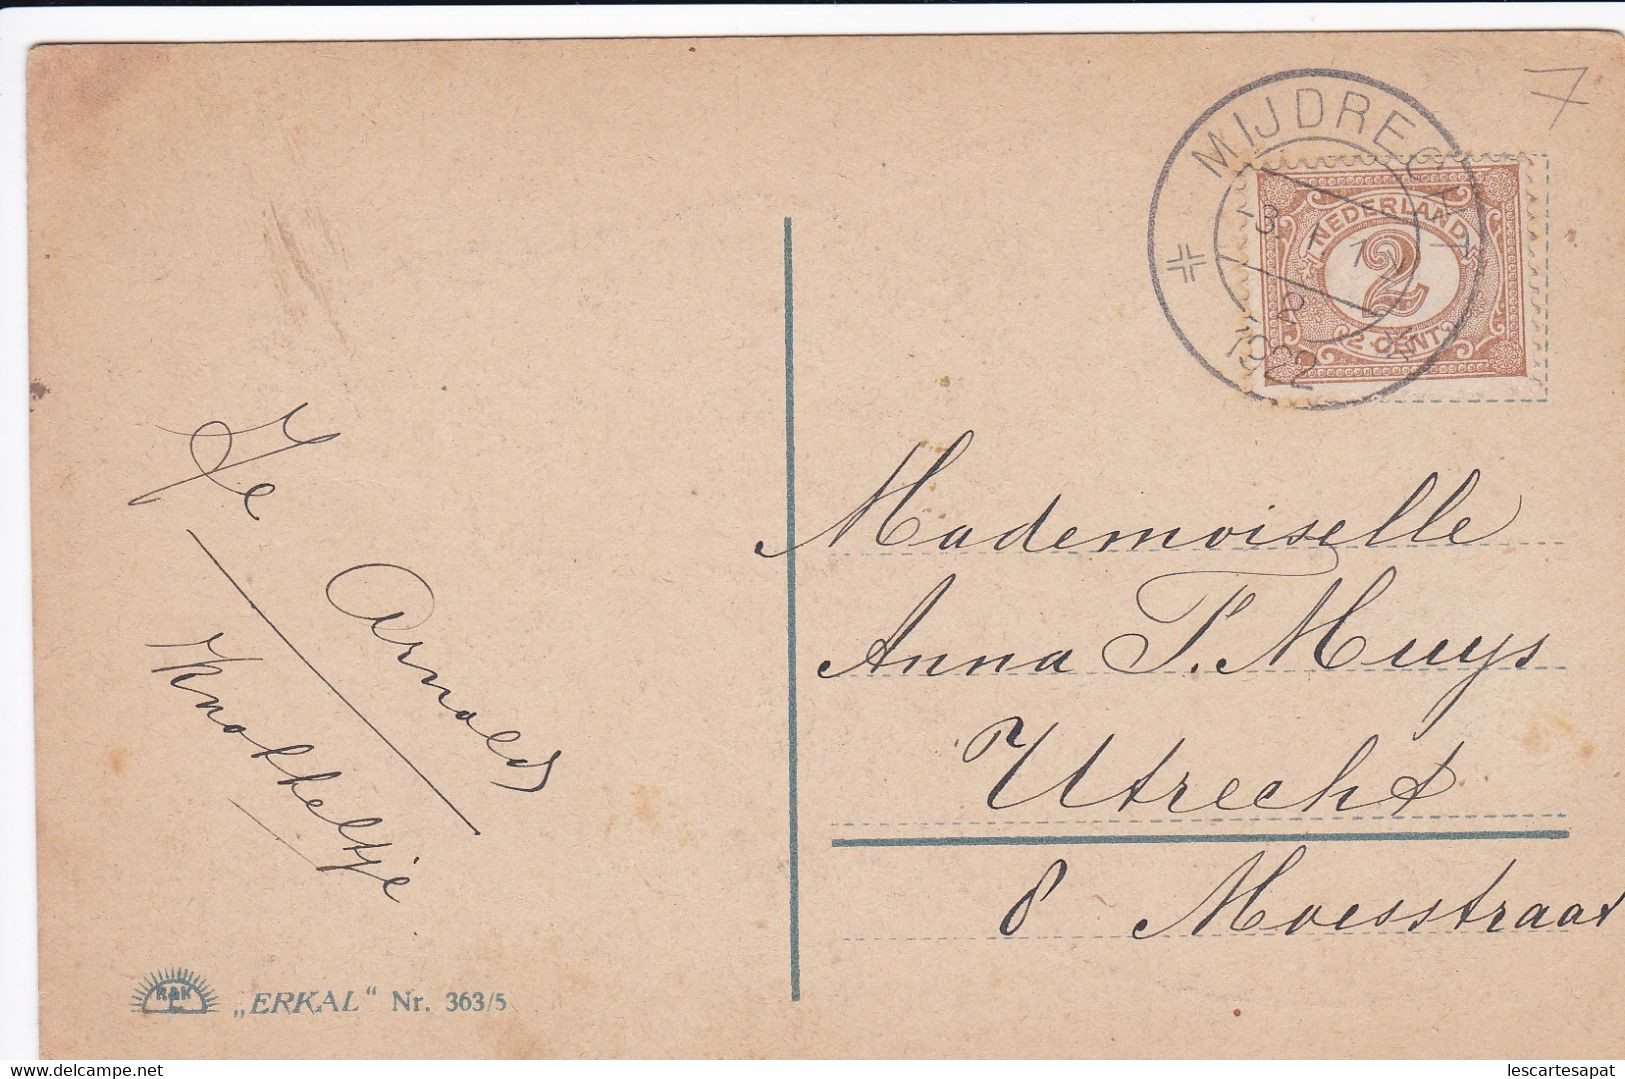 7
MIJDRECHT
-3. 1. 1 N
2
1922
NEDERLAND
2
2 CENT
Je
Arnolds
Knotteltje
Mademoiselle
Anna T. Muys
Utrecht
8 Moesstraat
R&K L
„ERKAL" Nr. 363/5
delcampe.net
lescartesapat